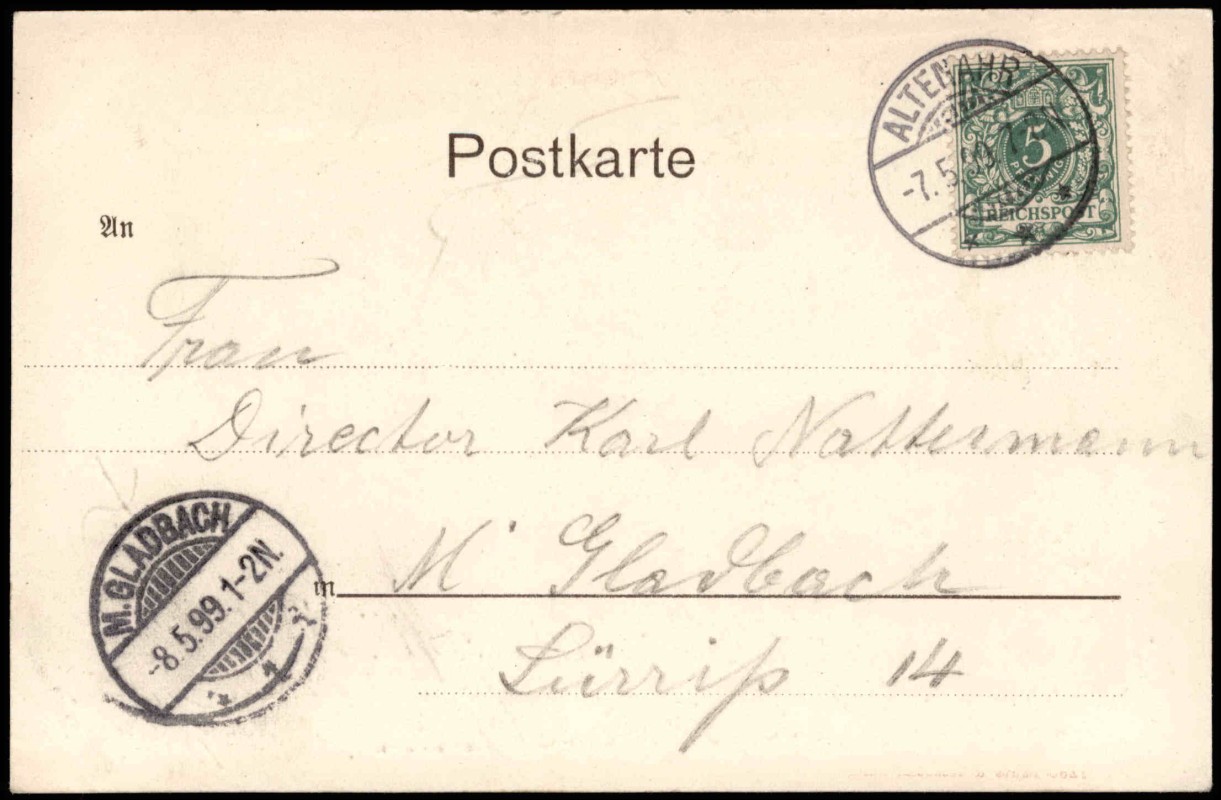 Postkarte
ALTENAHR
-7.5.99. 7-
5
PFENNIG
REICHSPOST
An
Frau
Director Karl Nattermann
M. GLADBACH
-8.5.99. 1-2N.
in
M' Gladbach
Lürrip 14